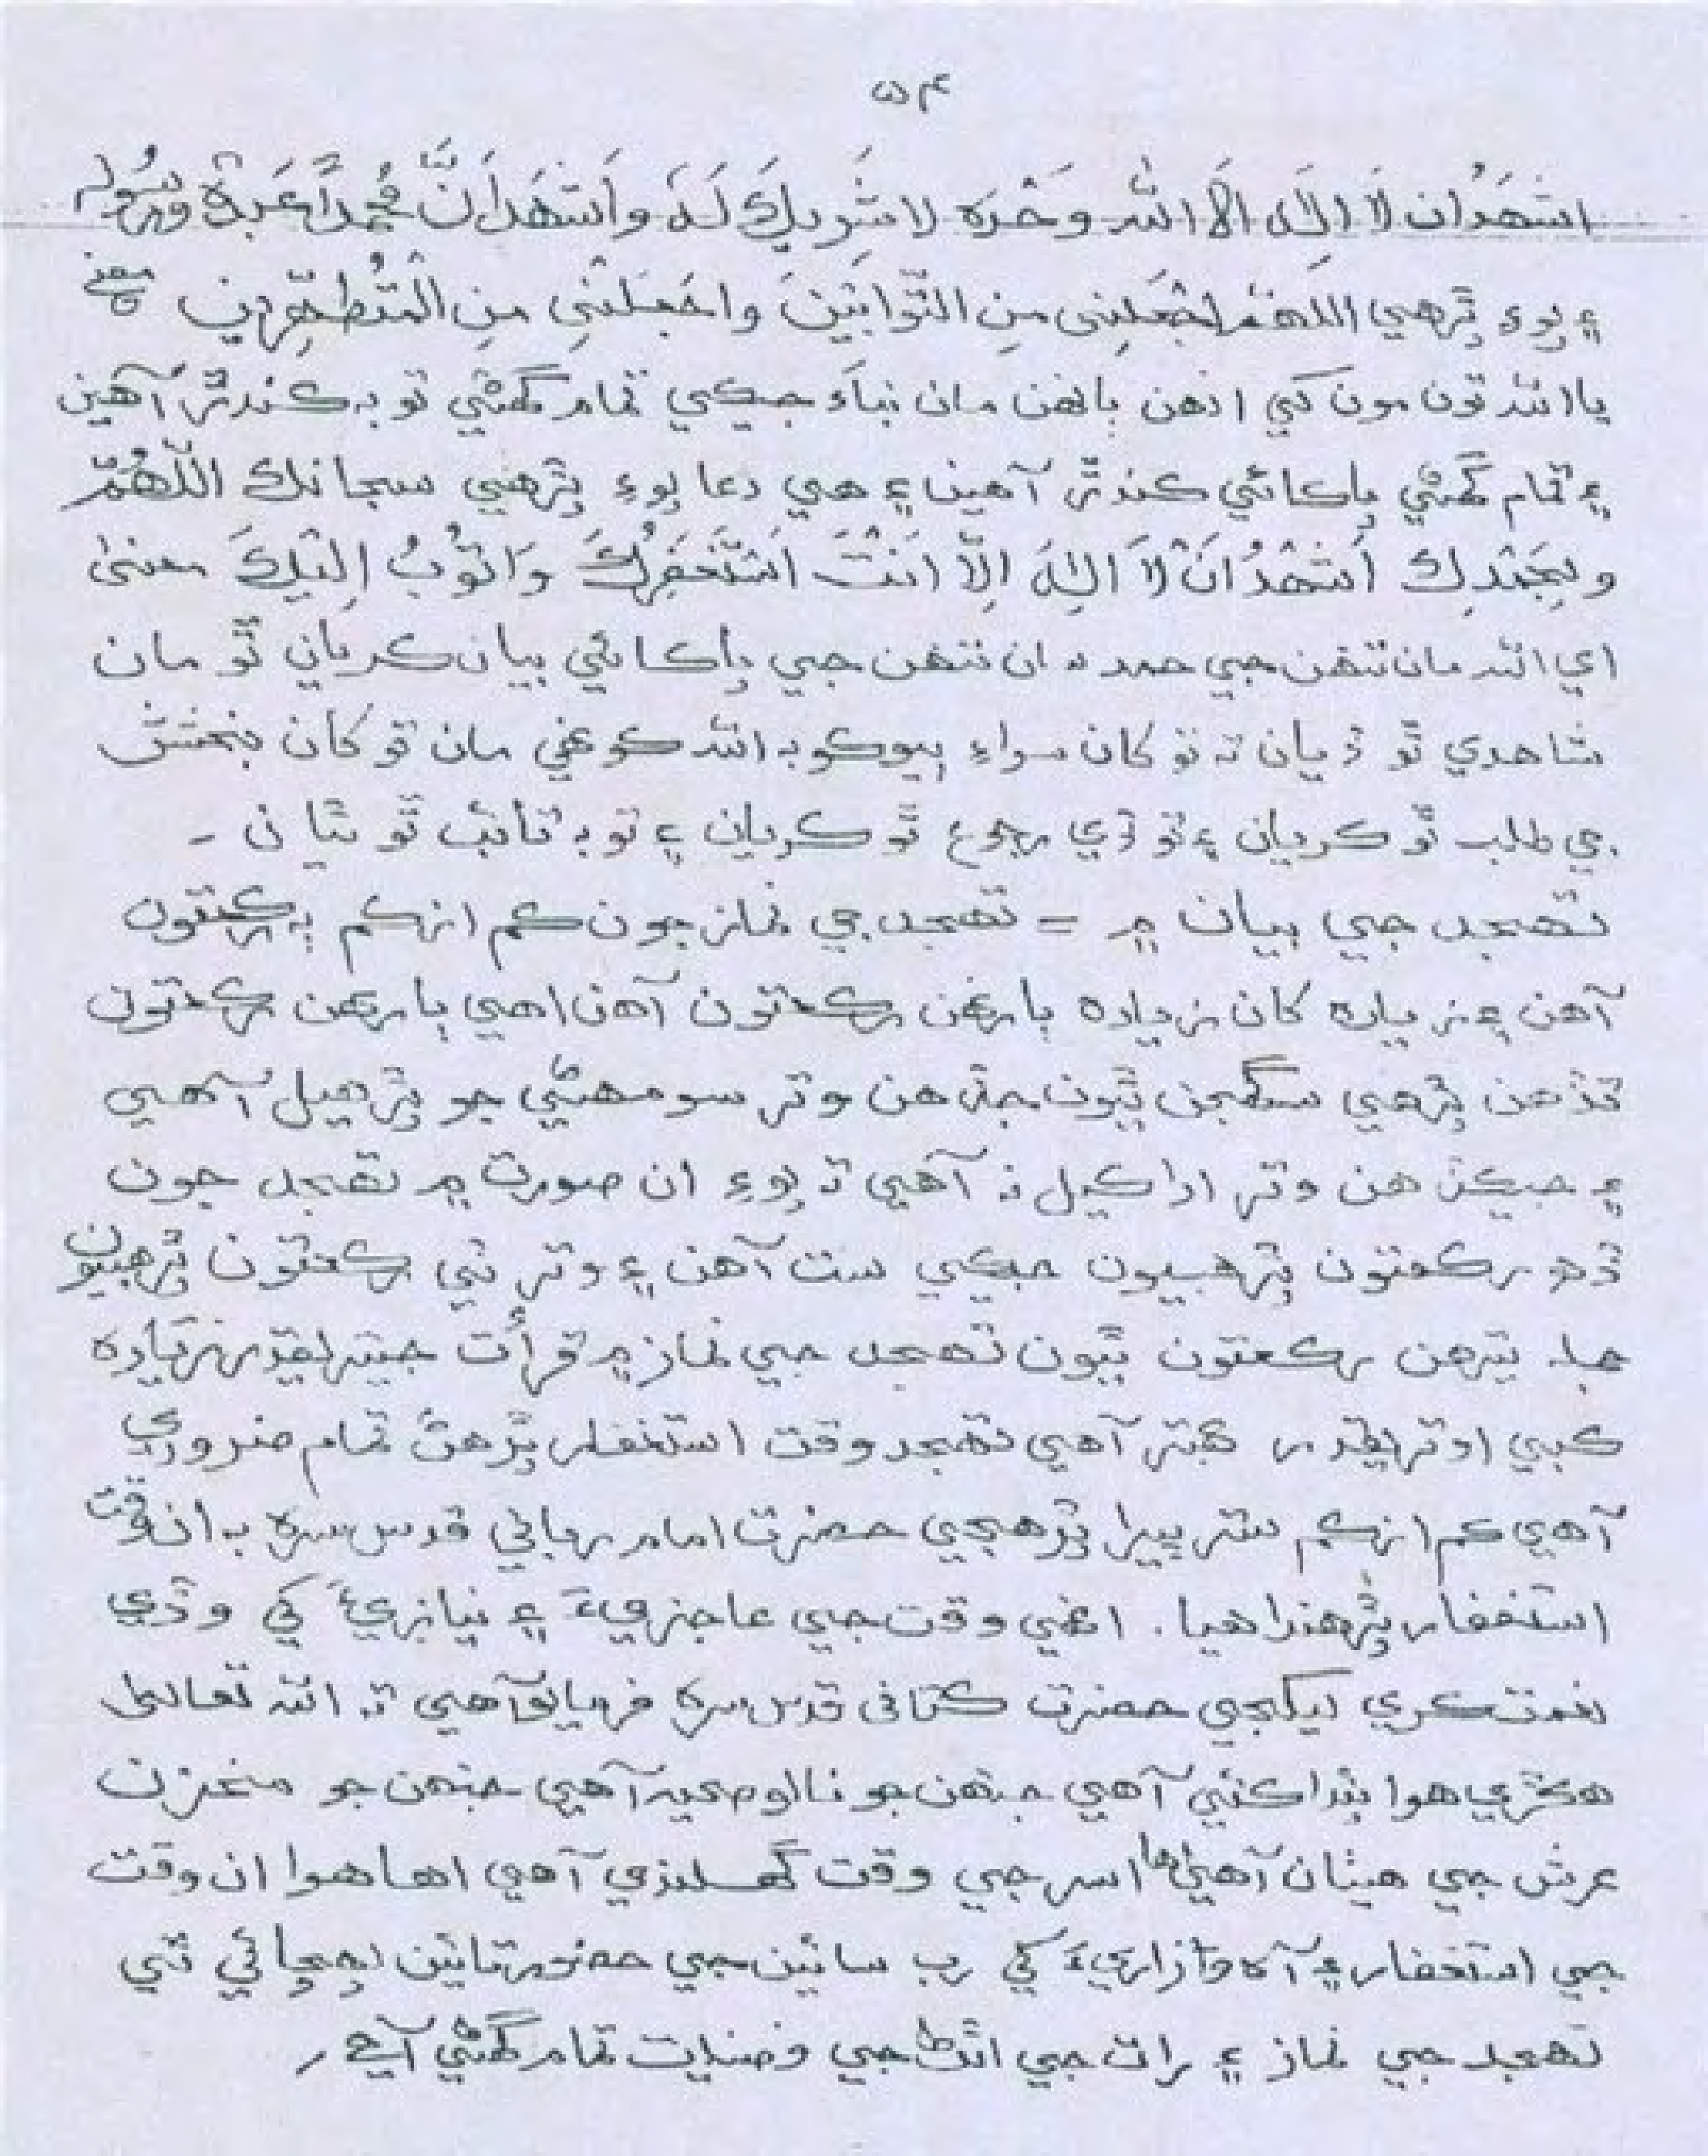 ۵۴
اشهَدُان لَا اِلٰه اِلَّا اللّٰه وَحْدَه لا شَرِيكَ لَهٗ وَاَشهَدُ اَنَّ مُحمداً عَبْدُهٗ وَرسُولُه
۽ پوءِ پڙهي اللهمّ اجْعَلنِى مِنَ التَّوّابِيْنَ واجْعَلْنِي مِنِ الْمُتَطَهِّرين معنيٰ
يا الله تون مون کي انهن ٻانهن مان بناءِ جيڪي تمام گهڻي توبه ڪندڙ آهين
۽ تمام گهڻي پاڪائي ڪندڙ آهين ۽ هي دعا پوءِ پڙهي سبحانك اللّٰهُمَّ
وبِحَمْدِك اَشْهَدُ اَنْ لَّا اِلٰهَ اِلَّا اَنْتَ اَسْتَغْفِرُكَ وَاَتُوْبُ اِلَيْكَ معنيٰ
اي الله مان تنهن جي حمد ۽ ان تنهن جي پاڪائي بيان ڪريان ٿو مان
شاهدي ٿو ڏيان ته تو کان سواءِ ٻيو ڪو به الله ڪونهي مان تو کان بخشش
جي طلب ٿو ڪريان ۽ تو ڏي رجوع ٿو ڪريان ۽ توبه تائب ٿو ٿيان -
تهجد جي بيان ۾ = تهجد جي نماز جون ڪم ازڪم ٻه رڪعتون
آهن ۽ زياده کان زياده ٻارهن رڪعتون آهن اهي ٻارهن رڪعتون
تڏهن پڙهي سگهجن ٿيون جڏهن وتر سومهڻي جو پڙهيل آهي
۽ جيڪڏهن وتر ادا ڪيل نه آهي ته پوءِ ان صورت ۾ تهجد جون
ڏهه رڪعتون پڙهبيون جيڪي ست آهن ۽ وتر ٽي رڪعتون پڙهبيون
جمله تيرهن رڪعتون ٿيون تهجد جي نماز ۾ قرأت جيتريقدر زياده
ڪبي اوتريقدر بهتر آهي تهجد وقت استغفار پڙهڻ تمام ضروري
آهي ڪم ازڪم ستر ڀيرا پڙهجي حضرت امام رباني قدس سره به ان وقت
استغفار پڙهندا هيا. انهي وقت جي عاجزيءَ ۽ نيازيءَ کي وڏي
نعمت ڪري ليکجي حضرت ڪتانى قدس سره فرمايو آهي ته الله تعالى
هڪڙي هوا پيدا ڪئي آهي جنهن جو نالو صحيه آهي جنهن جو مخزن
عرش جي هيٺان آهي اها اسر جي وقت گهلندي آهي اها هوا ان وقت
جي استغفار ۽ آه وزاريءَ کي رب سائين جي حضور تائين پهچائي ٿي
تهجد جي نماز ۽ رات جي اٿڻ جي فضيلت تمام گهڻي آهي ,